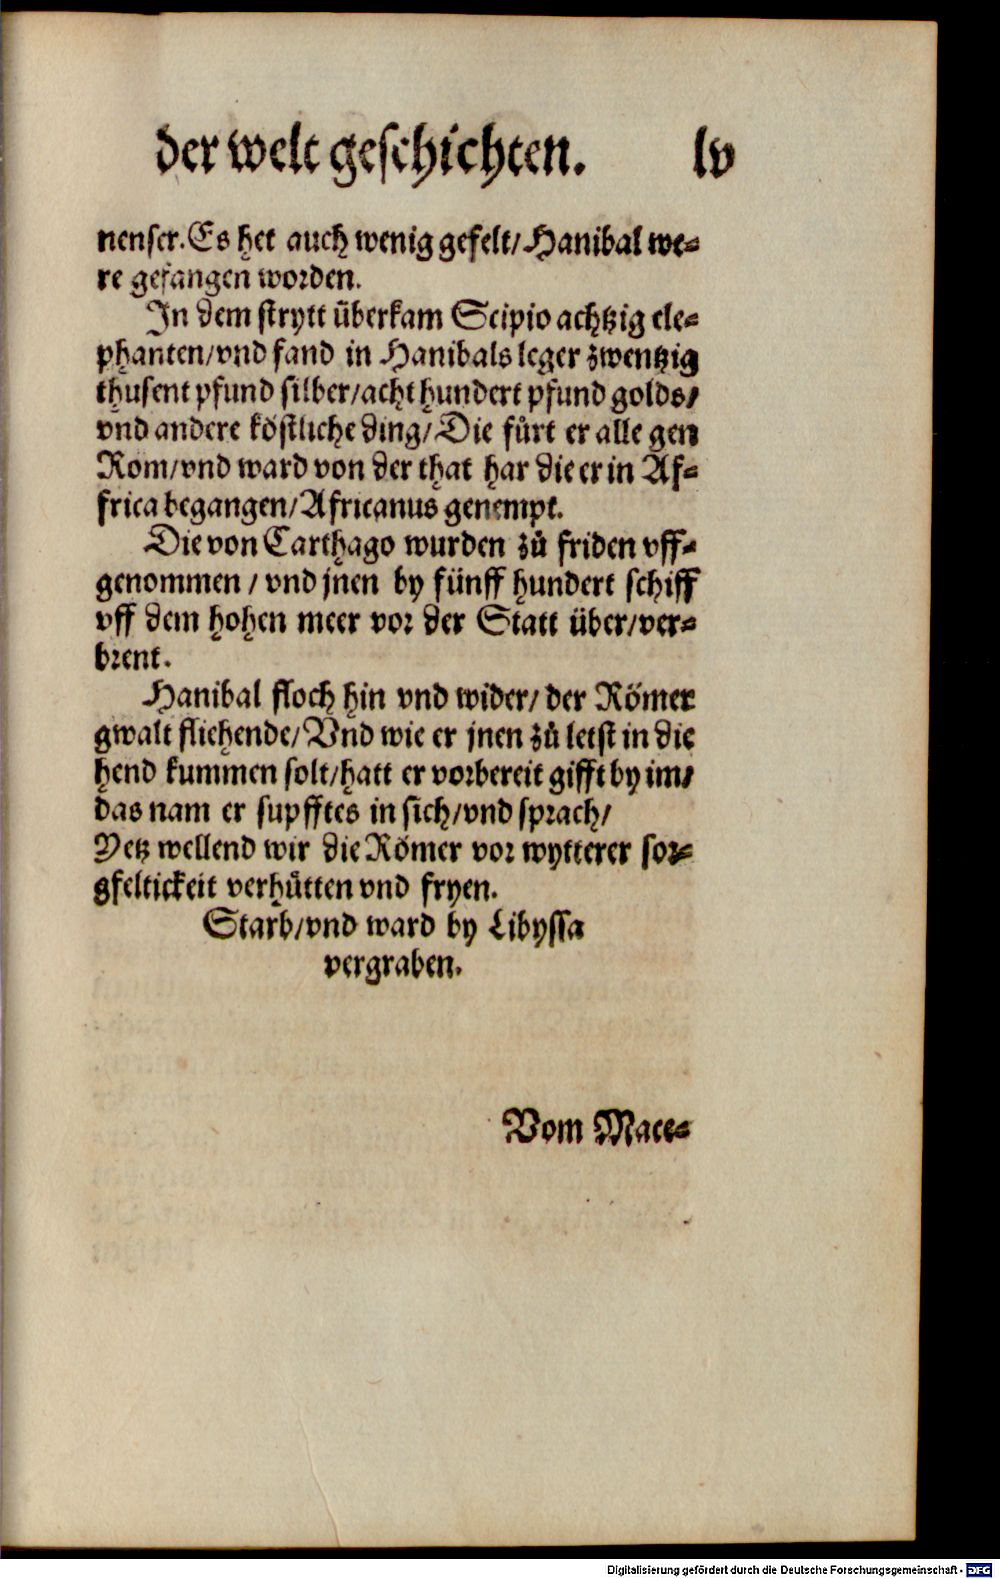 der welt geschichten. lv
nenser. Es het auch wenig gefelt/ Hanibal we⸗
re gefangen worden.
In dem strytt überkam Scipio achtzig ele⸗
phanten/ vnd fand in Hanibals leger zwentzig
thusent pfund silber/ acht hundert pfund golds/
vnd andere köstliche ding/ Die fůrt er alle gen
Rom/ vnd ward von der that har die er in Af⸗
frica begangen/ Africanus genempt.
Die von Carthago wurden zů friden vff⸗
genommen / vnd jnen by fünff hundert schiff
vff dem hohen meer vor der Statt über/ ver⸗
brent.
Hanibal floch hin vnd wider/ der Römer
gwalt fliehende/ Vnd wie er jnen zů letst in die
hend kummen solt/ hatt er vorbereit gifft by im/
das nam er supfftes in sich/ vnd sprach/
Yetz wellend wir die Römer vor wytterer sor⸗
gfeltickeit verhütten vnd fryen.
Starb/ vnd ward by Libyssa
vergraben.
Vom Mace⸗
Digitalisierung gefördert durch die Deutsche Forschungsgemeinschaft - DFG